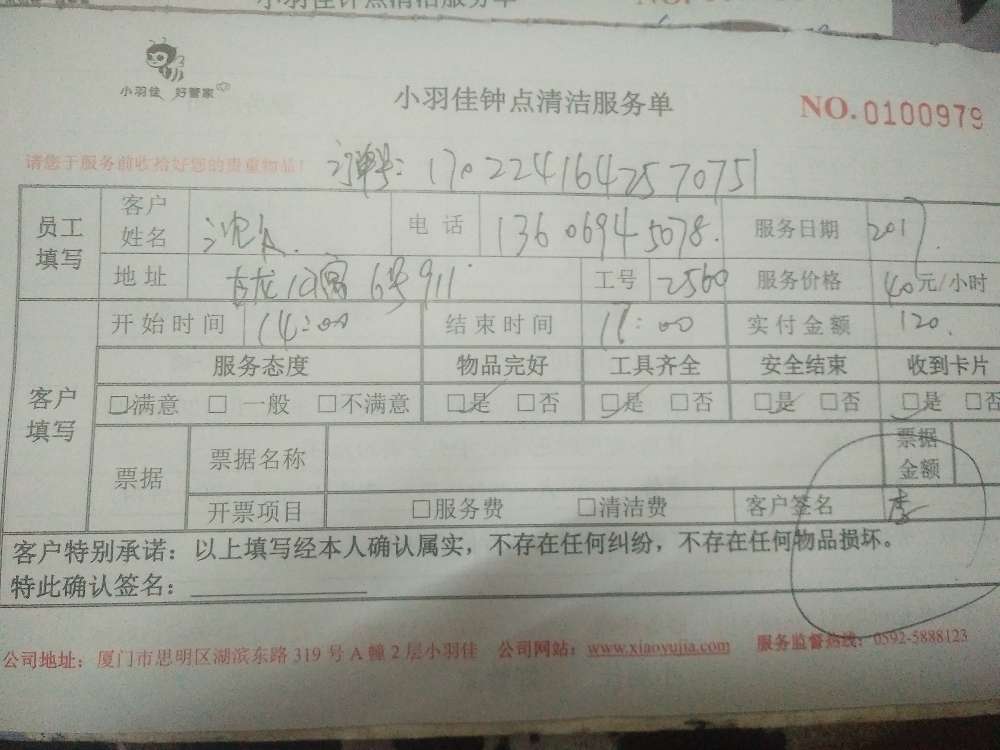 小羽佳钟点清洁服务单
小羽佳 好管家
小羽佳钟点清洁服务单
NO.0100979
请您于服务前收拾好您的贵重物品!
订单号: 1702241642570751
员工填写 客户姓名 电话 13606945078. 服务日期 2017.
地址 6号911 工号 2560 服务价格 40元/小时
客户填写 开始时间 14:00 结束时间 17:00 实付金额 120.
服务态度 物品完好 工具齐全 安全结束 收到卡片
☑满意 □ 一般 □不满意 ☑是 □否 ☑是 □否 ☑是 □否 ☑是 □否
票据 票据名称 票据金额
开票项目 □服务费 □清洁费 客户签名 李
客户特别承诺：以上填写经本人确认属实，不存在任何纠纷，不存在任何物品损坏。
特此确认签名：
公司地址：厦门市思明区湖滨东路 319 号 A 幢 2 层小羽佳 公司网站：www.xiaoyujia.com 服务监督热线：0592-5888123